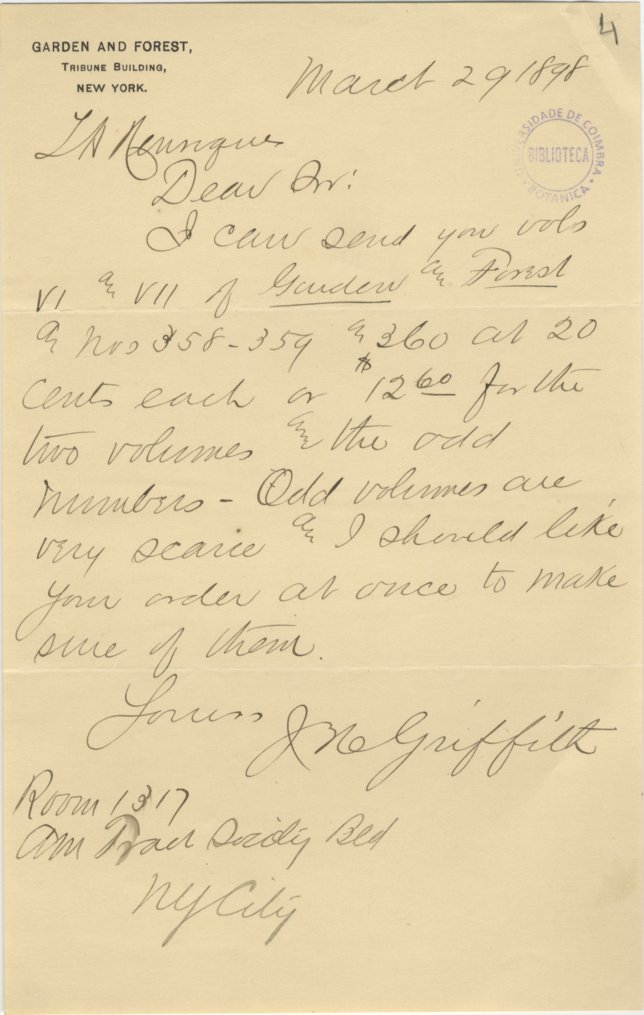 4
GARDEN AND FOREST,
TRIBUNE BUILDING,
NEW YORK.
March 29 1898
UNIVERSIDADE DE COIMBRA
BIBLIOTECA
BOTANICA
Henriques
Dear Sir:
I can send you vols
VI & VII of Garden & Forest
& Nos 358-359 & 360 at 20
cents each or $12 60 for the
two volumes & the odd
numbers - Odd volumes are
very scarce & I should like
your order at once to make
sure of them.
Yours J N Griffith
Room 1317
Am Tract Society Bld
NY City